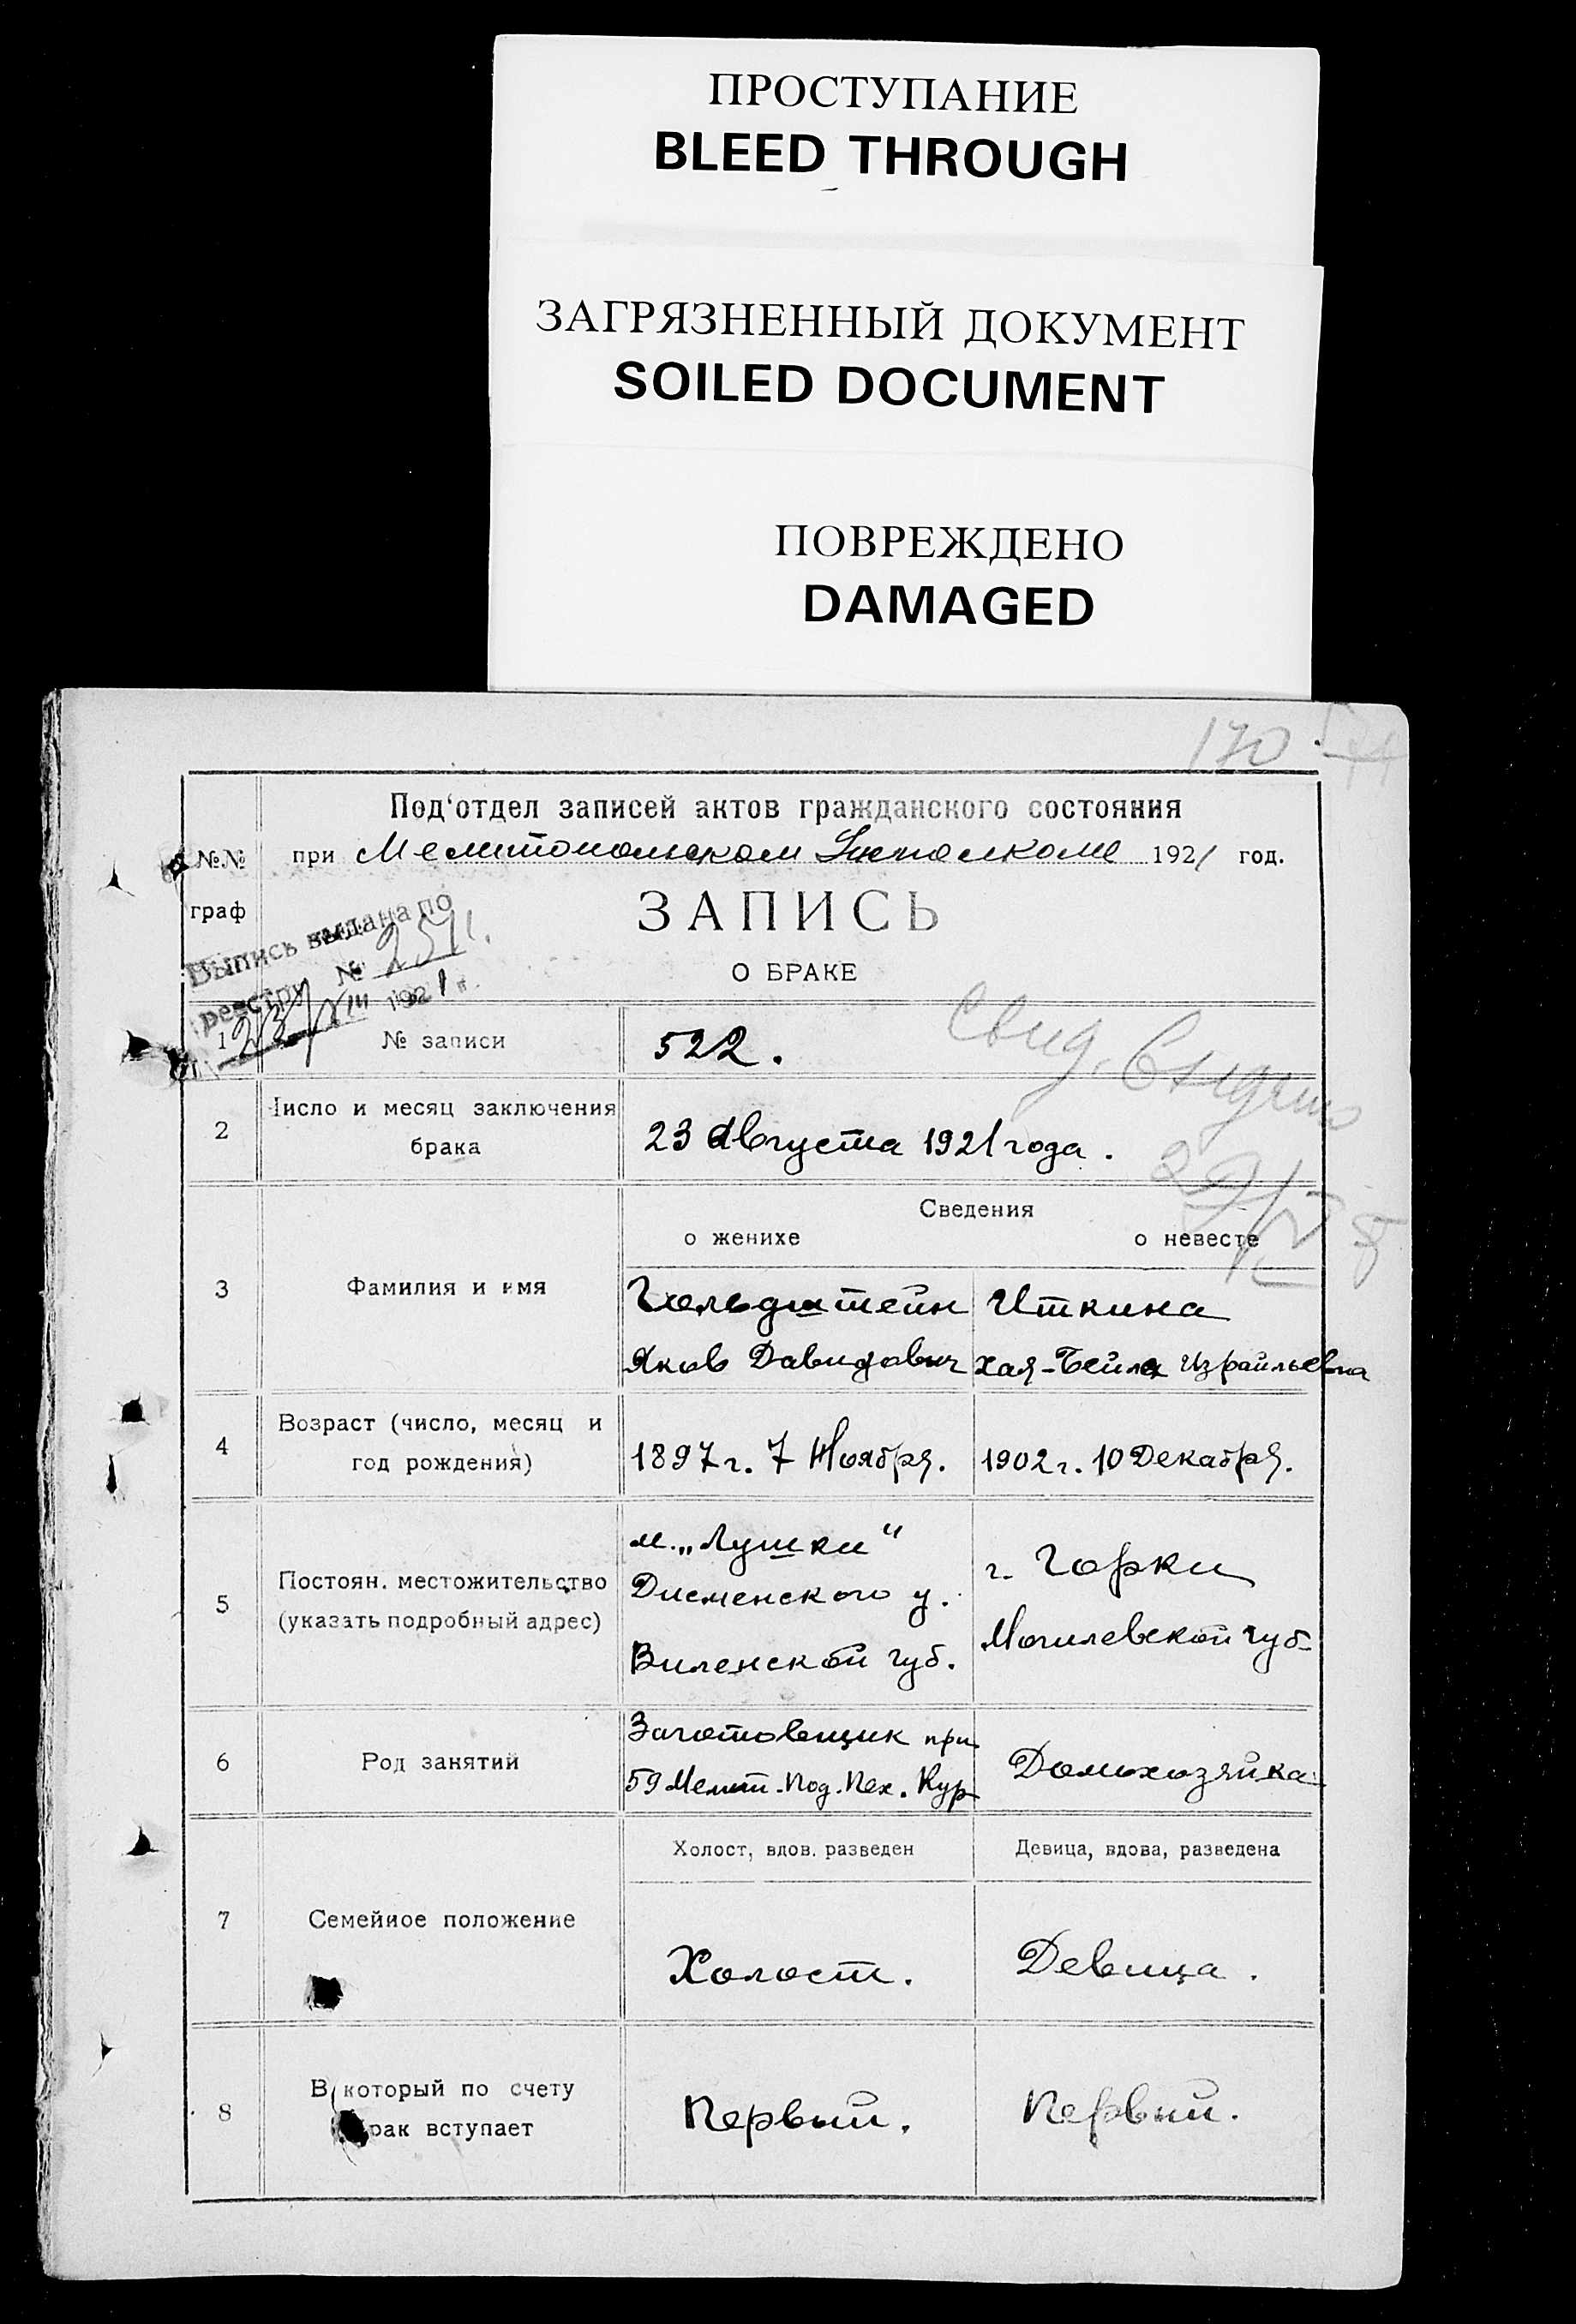 ПРОСТУПАНИЕ
BLEED THROUGH
ЗАГРЯЗНЕННЫЙ ДОКУМЕНТ
SOILED DOCUMENT
ПОВРЕЖДЕНО
DAMAGED
170
Под‘отдел записей актов гражданского состояния
№№ при Мелитопольском 1921 год.
граф
ЗАПИСЬ
О БРАКЕ
Выпись выдана по
реестру №
1921 г.
1 № записи 522.
Свид. Выдано
2 Число и месяц заключения брака 23 Августа 1921 года.
Сведения
о женихе о невесте
3 Фамилия и имя Гольдштейн Иткина
Яков Давидович Хая-Бейла Израильевна
4 Возраст (число, месяц и
год рождения) 1897 г. 7 Ноября. 1902 г. 10 Декабря.
5 Постоян. местожительство
(указать подробный адрес)
м. „Лушки“
Дисменского у.
Виленской губ.
г. Горки
Могилевской губ.
6 Род занятий
Заготовщик при
59 Мелит. Под. Пех. Кур
Домохозяйка
Холост, вдов. разведен Девица, вдова, разведена
7 Семейное положение Холост. Девица.
8 В который по счету
брак вступает Первый. Первый.